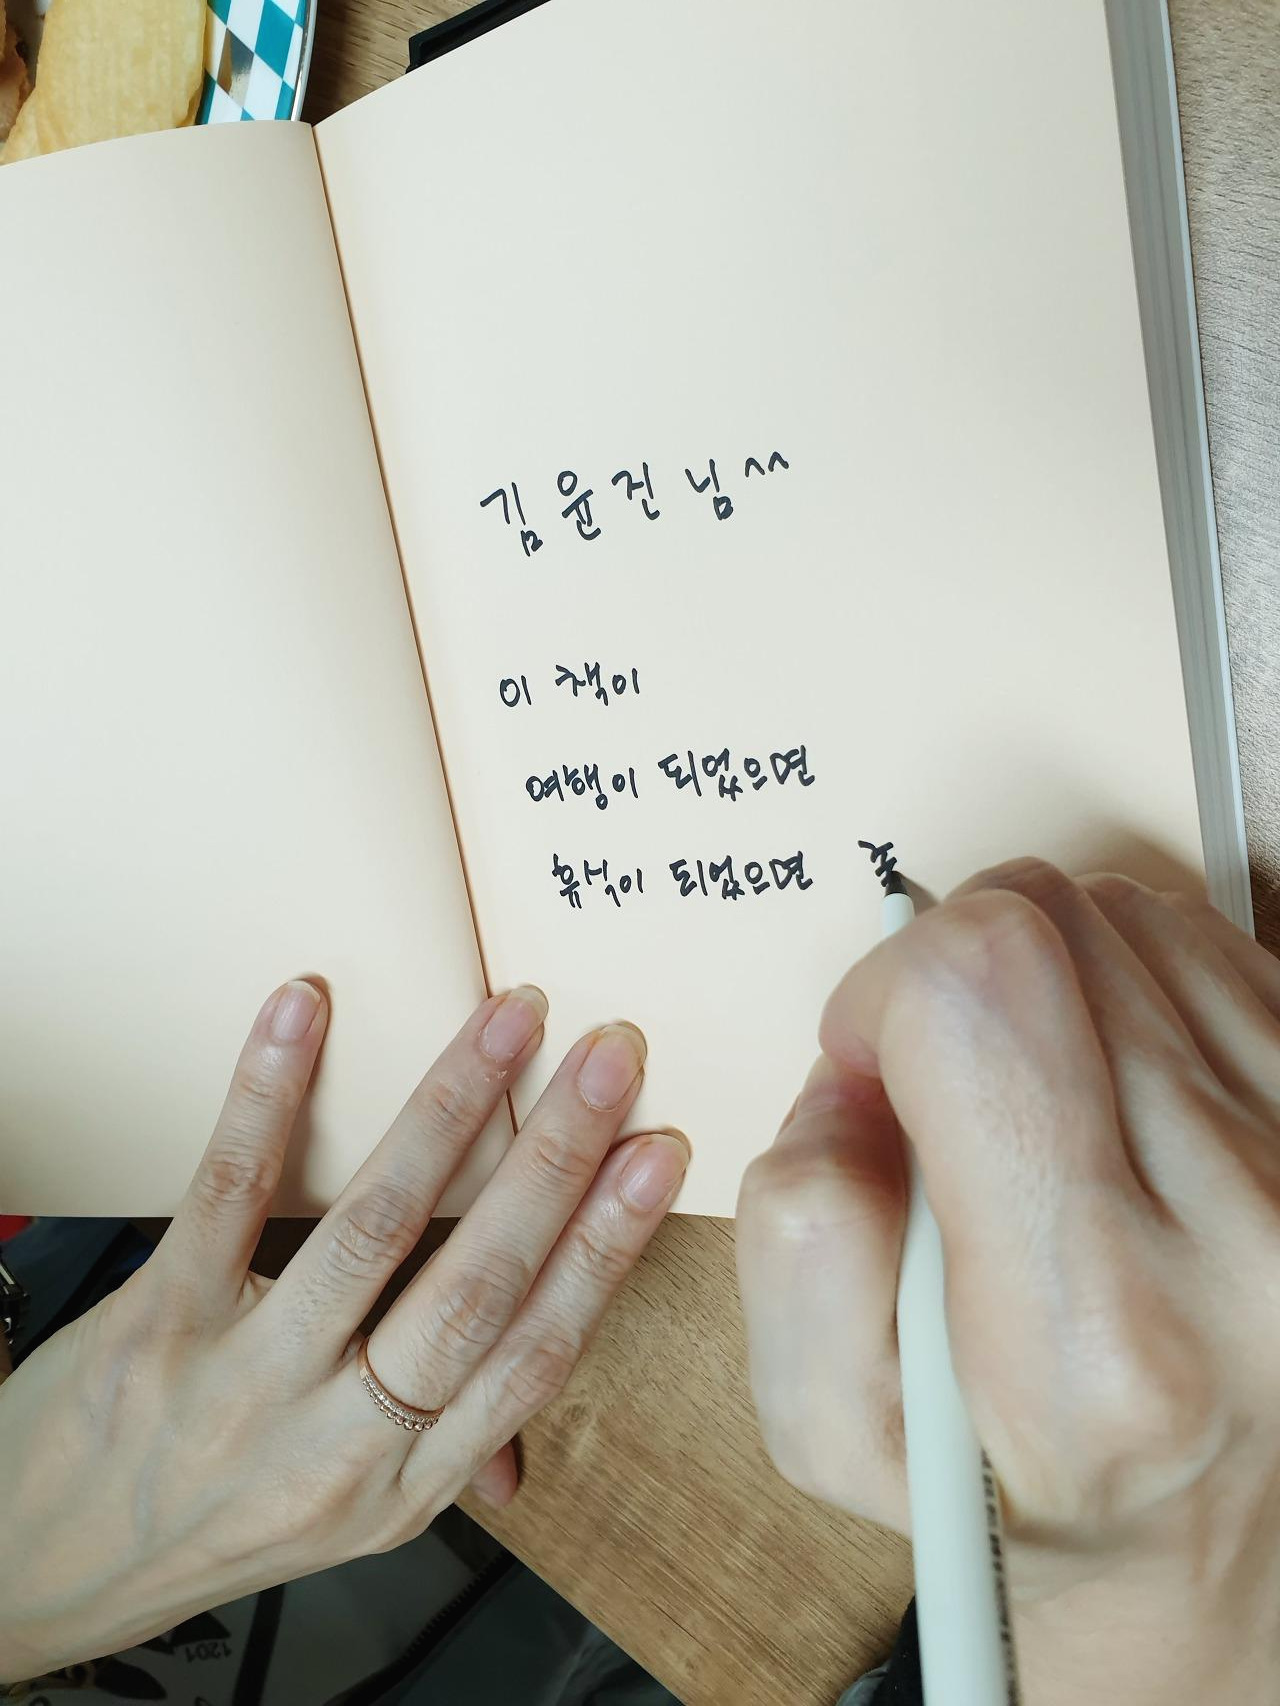 김윤진 님^^
이 책이
여행이 되었으면
휴식이 되었으면